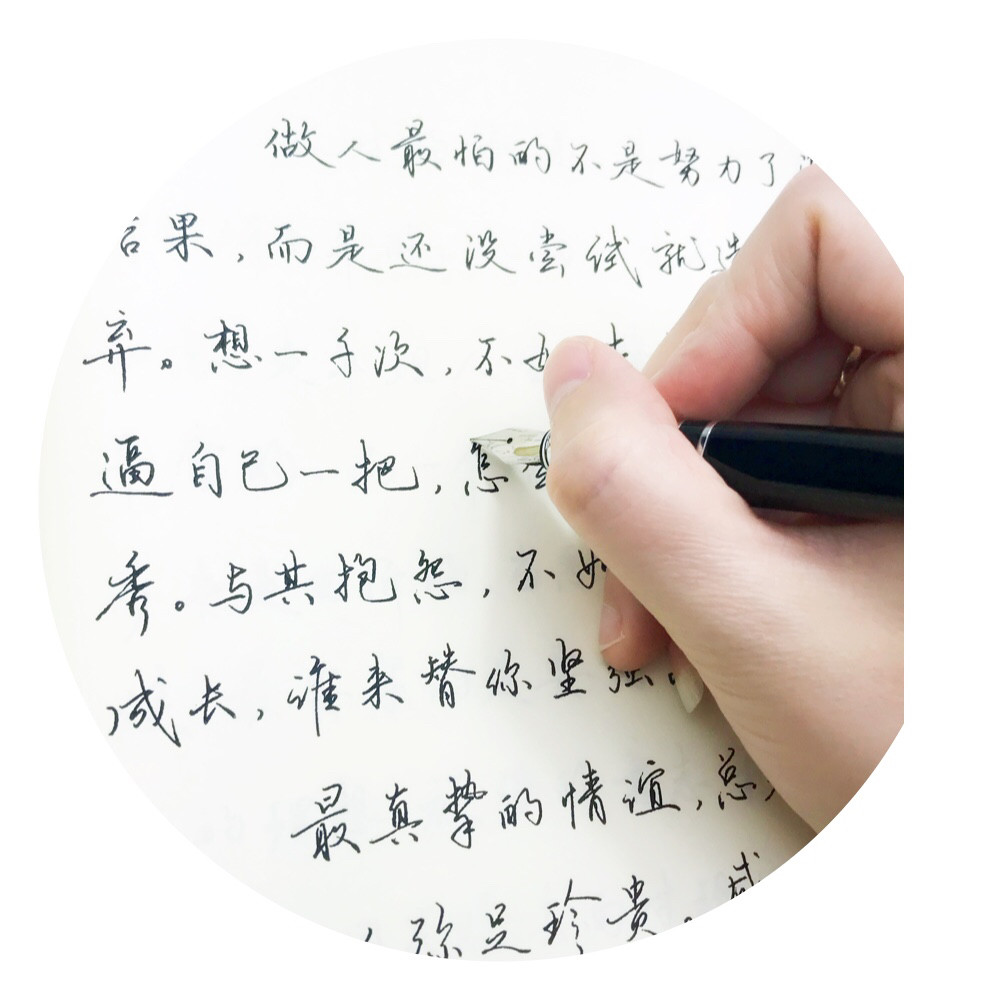 做人最怕的不是努力了
果，而是还没尝试就造
弃。想一千次，不如去
逼自己一把，怎
秀。与其抱怨，不如
成长，谁来替你坚强。
最真挚的情谊，总
弥足珍贵。感